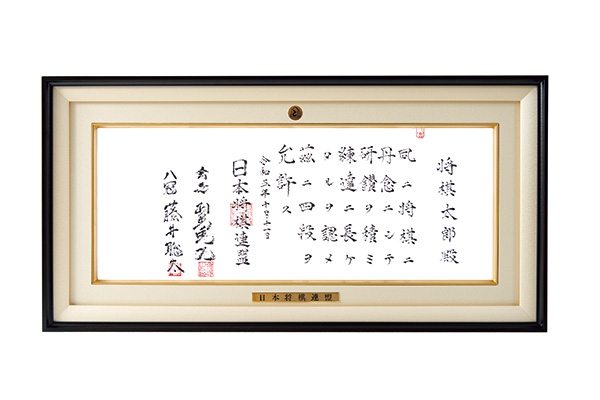 と
将棋太郎殿
夙ニ将棋ニ
丹念ニシテ
研鑽ヲ積ミ
練達ニ長ケ
タルヲ認メ
茲ニ四段ヲ
允許ス
令和 年十月十一日
日本将棋連盟
会長
八冠 藤井聡太
日本将棋連盟